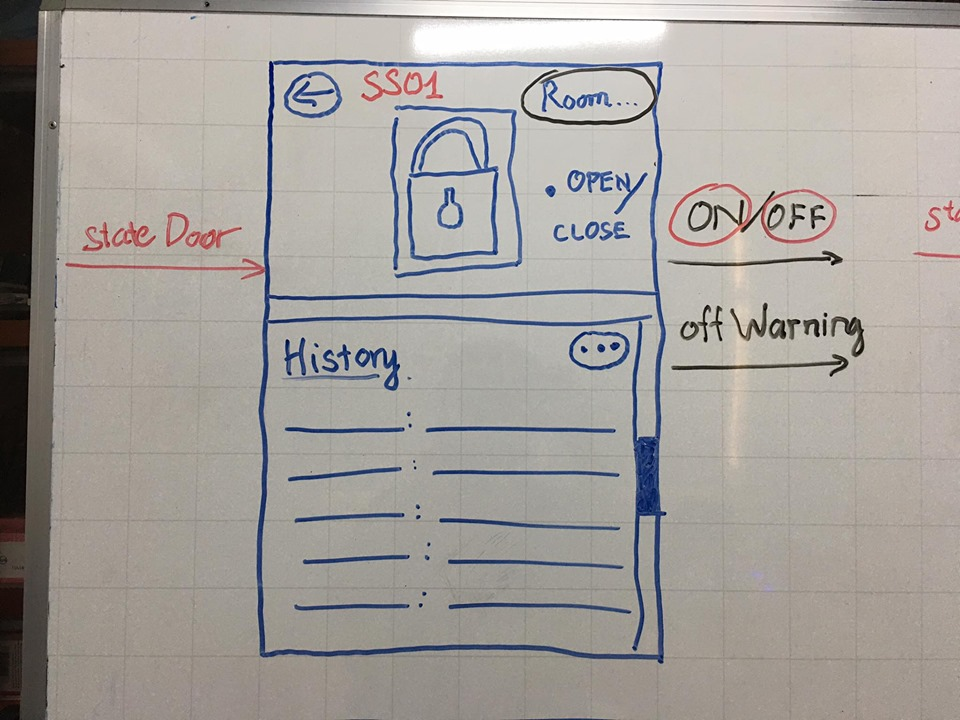 SS01
Room...
• OPEN/
CLOSE
state Door
ON/OFF
off Warning
History